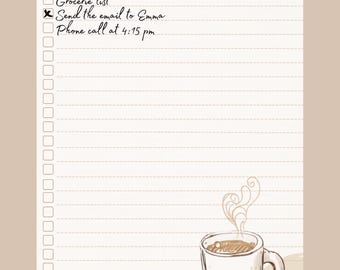 Grocerie list
Send the email to Emma
Phone call at 4:15 pm